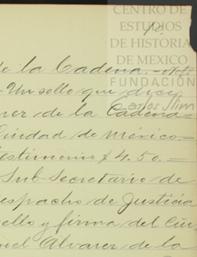 CENTRO DE
ESTUDIOS
DE HISTORIA
DE MEXICO
FUNDACIÓN
Carlos Slim
de la Cadena.
Un sello que dice
de la Cadena
Ciudad de México
Testimonio $4.50.=
Sub-Secretario de
espacho de Justicia
sello y firma del Ciu
uel Alvarez de la